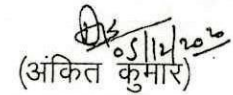 05/12/2020
(अंकित कुमार)